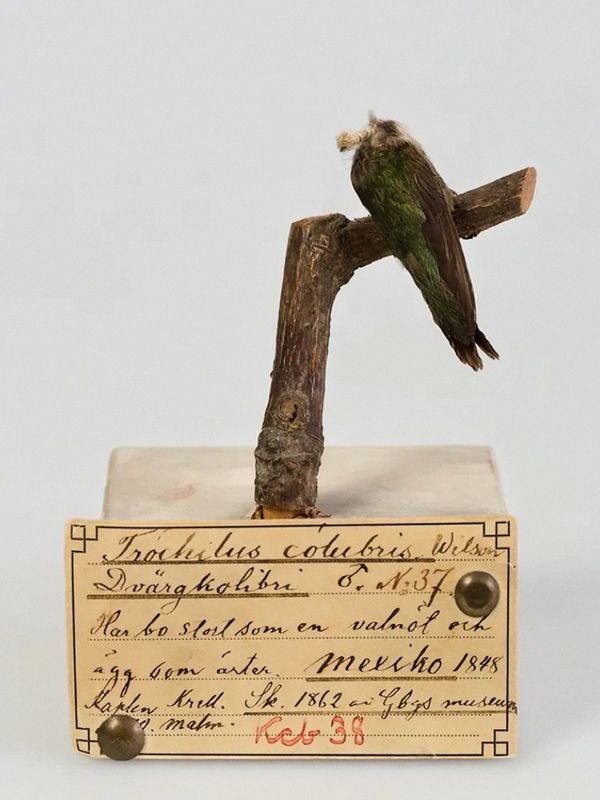 Trochilus colubris Wilson
Dvärgkolibri No. 37
Har bo stort som en valnöt och
ägg som ärter. Mexiko 1848
Kapten Krell. Sk. 1862 av Gbgs museum
malm.
Kcb 38